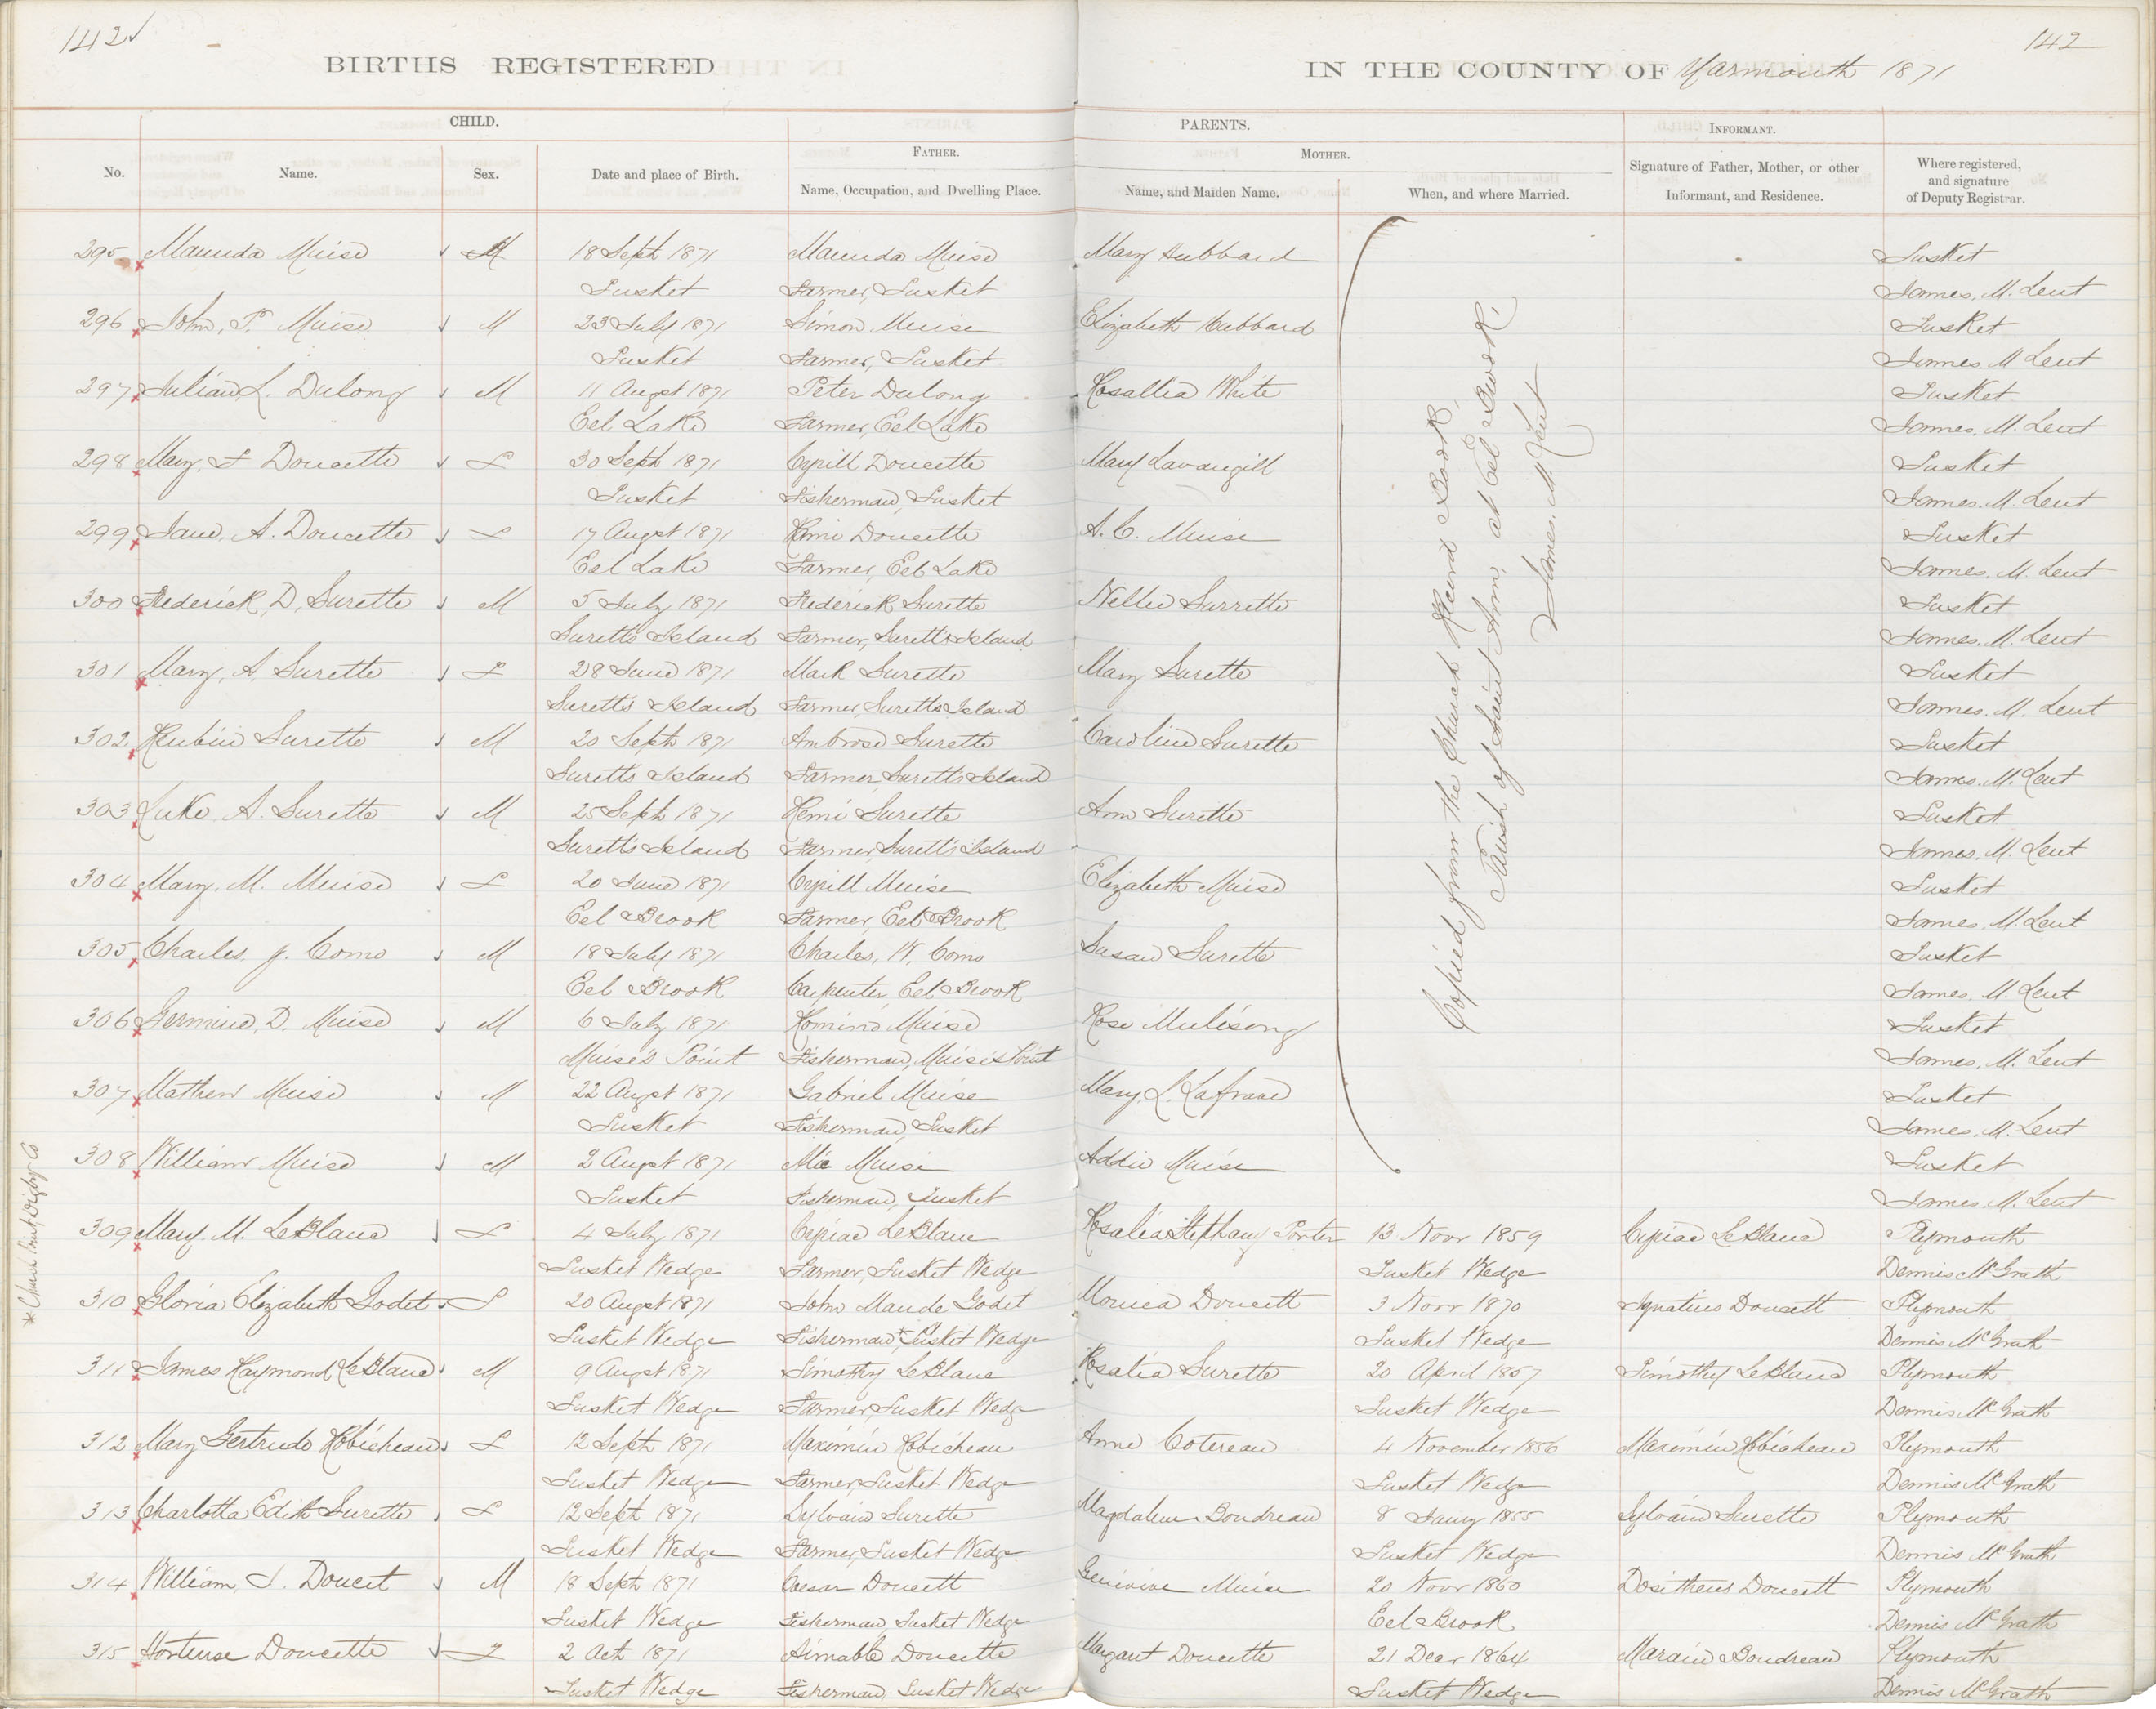 142
142
BIRTHS REGISTERED
IN THE COUNTY OF Yarmouth 1871
CHILD.
PARENTS.
INFORMANT.
FATHER.
MOTHER.
No.
Name.
Sex.
Date and place of Birth.
Name, Occupation, and Dwelling Place.
Name, and Maiden Name.
When, and where Married.
Signature of Father, Mother, or other
Informant, and Residence.
Where registered,
and signature
of Deputy Registrar.
295 Maunda Muise M 18 Sept 1871 Maunda Muise Mary Hubbard Tusket
Tusket Farmer, Tusket James. M. Lent
296 John, P. Muise M 23 July 1871 Simon Muise Elizabeth Hubbard Tusket
Tusket Farmer, Tusket James. M Lent
297 Julian, L. Dulong M 11 Augst 1871 Peter Dulong Rosallia White Tusket
Eel Lake Farmer, Eel Lake James. M. Lent
298 Mary, F Doucette F 30 Sept 1871 Cyrill Doucette Mary Tusket
Tusket Fisherman, Tusket James. M. Lent
299 Jane, A. Doucette F 17 Augst 1871 Remi Doucette A. C. Muise Tusket
Eel Lake Farmer, Eel Lake James. M. Lent
300 Frederick, D, Surette M 5 July 1871 Frederick Surette Nellie Surrette Tusket
Surett's Island Farmer, Surett's Island James. M. Lent
301 Mary, A. Surette F 28 June 1871 Mark Surette Mary Surette Tusket
Surett's Island Farmer, Surett's Island James. M. Lent
302 Reubin Surette M 20 Sept 1871 Ambrose Surette Caroline Surette Tusket
Surett's Island Farmer, Surett's Island James. M. Lent
303 Luke, A. Surette M 25 Sept 1871 Remi Surette Ann Surette Tusket
Surett's Island Farmer, Surett's Island James. M. Lent
304 Mary. M. Muise F 20 June 1871 Cyrill Muise Elizabeth Muise Tusket
Eel Brook Farmer, Eel Brook James. M. Lent
305 Charles. J. Como M 18 July 1871 Charles, W. Como Susan Surette Tusket
Eel Brook Carpenter, Eel Brook James. M. Lent
306 Germine, D. Muise M 6 July 1871 Muise Rose Tusket
Muise's Point Fisherman, Muise's Point James, M. Lent
307 Mathew Muise M 22 Augst 1871 Gabriel Muise Mary. L. Tusket
Tusket Fisherman, Tusket James. M. Lent
308 William Muise M 2 Augst 1871 Muise Addie Muise Tusket
Tusket Fisherman, Tusket James. M. Lent
Copied from the Church Record Book,
Parish of Saint Ann, at Eel Brook,
James. M. Lent
309 Mary. M. LeBlanc F 4 July 1871 Cypiac LeBlanc Rosalia Stephany Porter 13 Novr 1859 Cypiac LeBlanc Plymouth
Tusket Wedge Farmer, Tusket Wedge Tusket Wedge Dennis McGrath
310 Gloria Elizabeth Godet F 20 Augst 1871 John Maude Godet Monica Doucett 3 Novr 1870 Ignatius Doucett Plymouth
Tusket Wedge Fisherman, Tusket Wedge Tusket Wedge Dennis McGrath
311 James Raymond LeBlanc M 9 Augst 1871 Timothy LeBlanc Rosalia Surette 20 April 1857 Timothy LeBlanc Plymouth
Tusket Wedge Farmer, Tusket Wedge Tusket Wedge Dennis McGrath
312 Mary Gertrude Robicheau F 12 Sept 1871 Maximin Robicheau Anne Cotereau 4 November 1856 Maximin Robicheau Plymouth
Tusket Wedge Farmer, Tusket Wedge Tusket Wedge Dennis McGrath
313 Charlotta Edith Surette F 12 Sept 1871 Sylvain Surette Magdalene Boudreau 8 Jany 1855 Sylvain Surette Plymouth
Tusket Wedge Farmer, Tusket Wedge Tusket Wedge Dennis McGrath
314 William, J. Doucet M 18 Sept 1871 Cesar Doucett Genivive Muise 20 Novr 1860 Dositheus Doucett Plymouth
Tusket Wedge Fisherman, Tusket Wedge Eel Brook Dennis McGrath
315 Hortense Doucette F 2 Oct 1871 Aimable Doucette Margaret Doucette 21 Decr 1864 Marain Boudreau Plymouth
Tusket Wedge Fisherman, Tusket Wedge Tusket Wedge Dennis McGrath
* Church Point, Digby Co